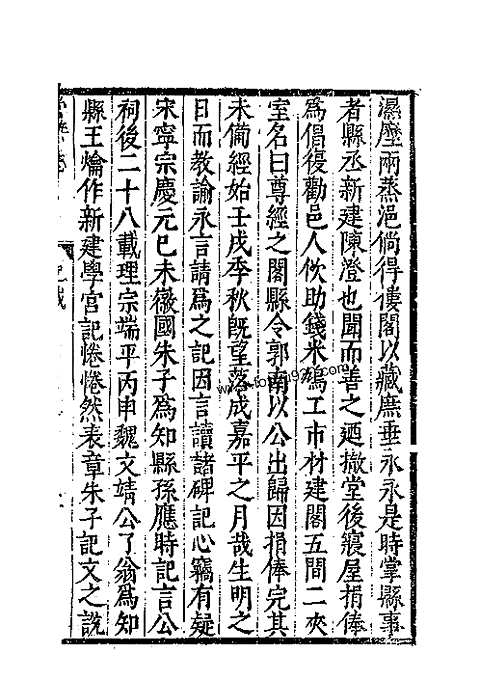 濕塵雨蒸浥倘得僂閣以藏庶垂永永是時掌縣事
者縣丞新建陳澄也聞而善之廼撤堂後寢屋捐俸
爲倡復勸邑人佽助錢米鳩工市材建閣五間二夾
室名曰尊經之閣縣令郭南以公出歸因捐俸完其
未備經始壬戌季秋旣望落成嘉平之月哉生明之
日而教諭永言請爲之記因言讀諸碑記心竊有疑
宋寧宗慶元己未徽國朱子爲知縣孫應時記言公
祠後二十八載理宗端平丙申魏文靖公了翁爲知
縣王爚作新建學宮記惓惓然表章朱子記文之說